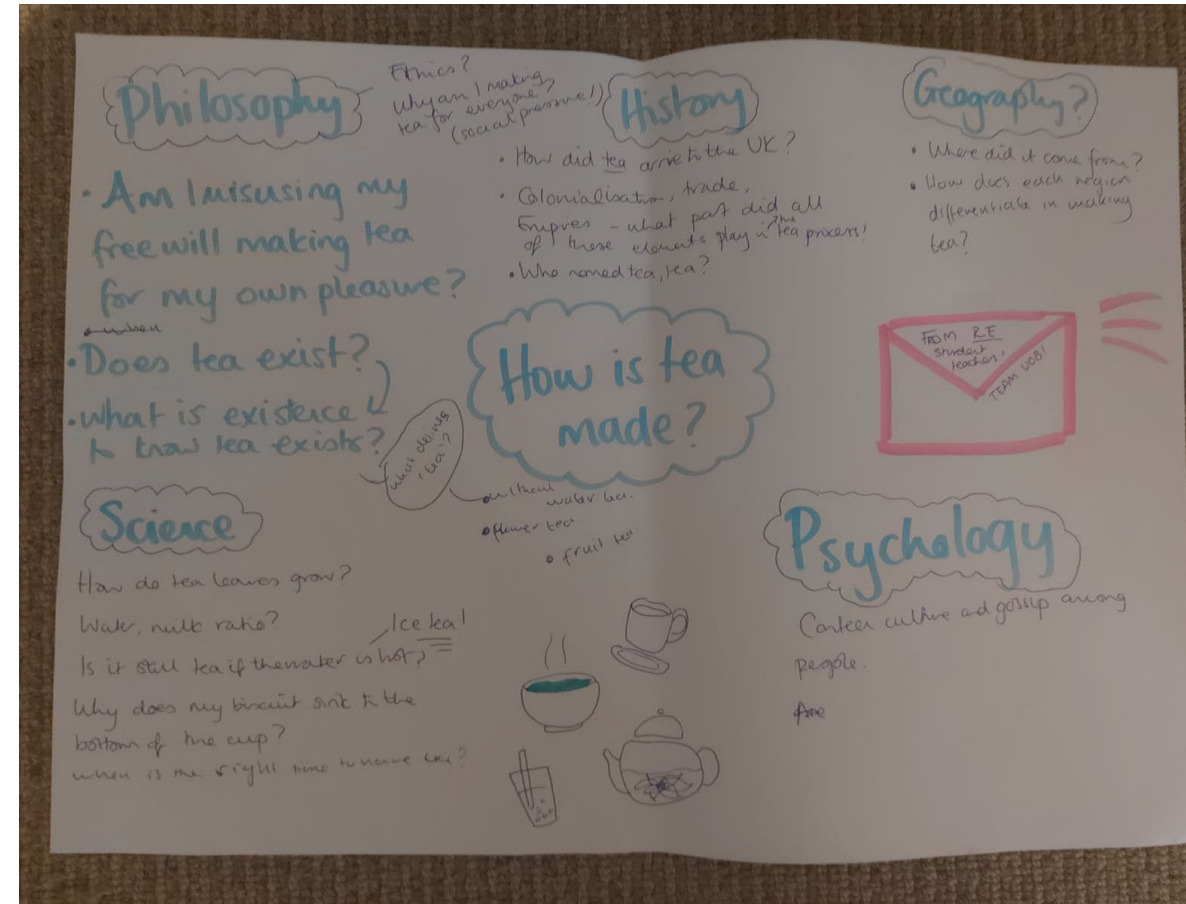 Philosophy
Ethics?
Why am I making
tea for everyone?
(social pressure!)
• Am I misusing my
free will making tea
for my own pleasure?
• when
• Does tea exist?
• What is existence
to know tea exists?
History
• How did tea arrive to the UK?
• Colonialisation, trade,
Empires - what part did all
of these elements play in the tea process!
• Who named tea, tea?
Geography?
• Where did it come from?
• How does each region
differentiate in making
tea?
How is tea
made?
What defines
'tea'?
• without
water tea.
• flower tea.
• fruit tea
FROM RE
Student
teachers!
TEAM UOB!
Science
How do tea leaves grow?
Water, milk ratio?
Ice tea!
Is it still tea if the water is hot?
Why does my biscuit sink to the
bottom of the cup?
When is the right time to have tea?
Psychology
culture and gossip among
people.